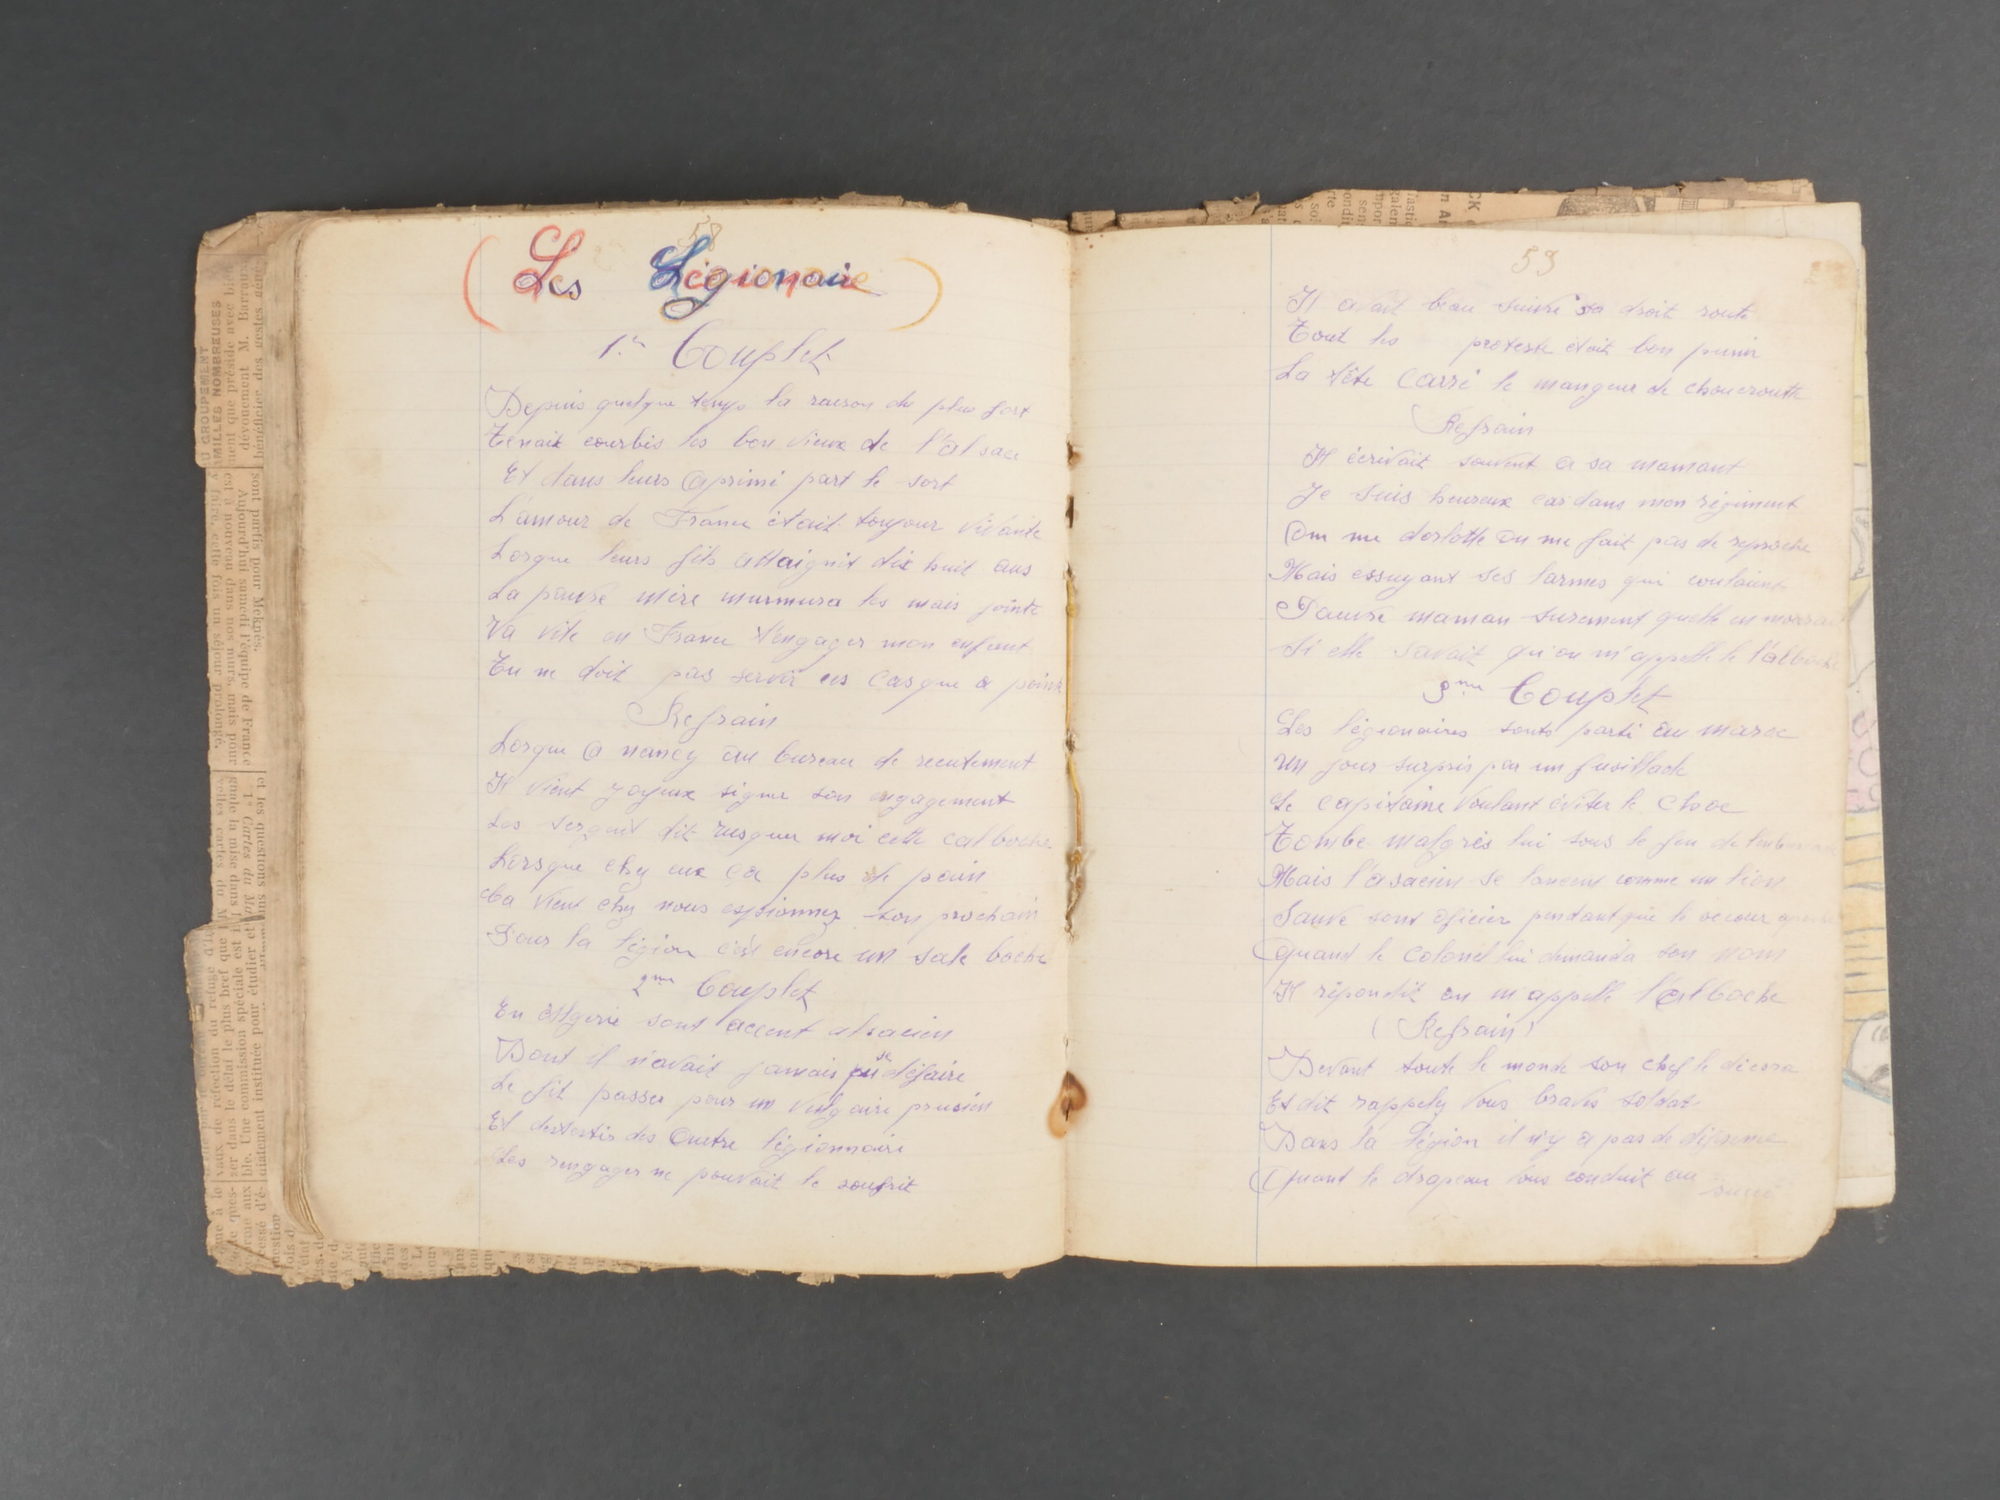 58
(Les Légionaire)
1.er Couplet
Depuis quelque temps la raison du plus fort
Tenait courbis les bon vieux de l'alsace
Et dans leurs aprimé part le sort
L'amour de France était toujour vivante
Lorque leurs fils attaignit dix huit ans
La pauvre mère murmura les mais jointe
Va vite en France t'engager mon enfant
Tu ne doit pas servir ces casque a pointe
Refrain
Lorque a nancy au bureau de recutement
Il vient joyeux signer son engagement
Les sergent dit cette calboche
Lorsque chez eux ça plus de pain
Ca vient chez nous espionnez son prochain
Pour la légion c'est encore un sale boche
2me Couplet
En Algerie sont accent alsacien
Dont il n'avait jamais pu se défaire
Le fit passer pour un vulgaire prusien
Et des autre légionnaire
Les rengager ne pouvait le soufrit
53
Il avait beau suivre sa droit route
Tout les pretexte était bon punir
La tête carré le mangeur de choucroutte
Refrain
Il écrivait souvent a sa mamant
Je suis heureux car dans mon régiment
On me dorlotte on me fait pas de reproche
Mais essuyant ses larmes qui coulaient
Pauvre maman surement quelle en
Si elle savait qu'on m'appelle l'alboche
3me Couplet
Les légionaires sonts parti au maroc
un jour surpris par un fusillade
Le capitaine voulant éviter le choc
Tombe malgrès lui sous le feu de
Mais l'asacien se lancent comme un lion
Sauve sont oficier pendant que le secour
Quand le colonel lui demanda son nom
Il répondit on m'appelle l'alboche
(Refrain)
Devant toute le monde son chef le décora
Et dit rappelez vous braves soldat
Dans la légion il n'y a pas de
Quant le drapeau vous conduit au